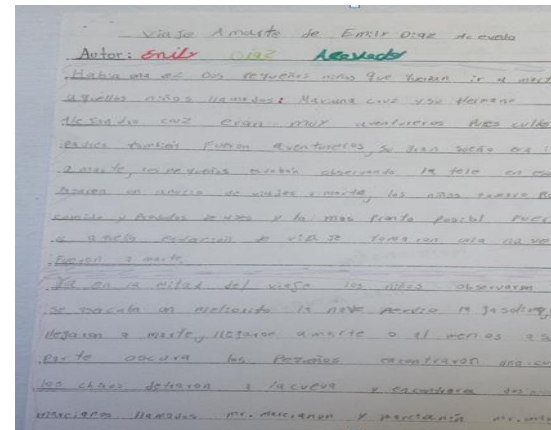 Viaje A marte de Emily Diaz Acevedo
Autor: Emily Diaz Acevedo
Habia una vez Dos pequeños niños que querian ir a mart
aquellos niños llamados: Mariana cruz y su Hermano
cruz eran muy aventureros Pues
padres tambien fueron aventureros, su gran sueño era i
a marte, los pequeños estaban observando la tele en
un anuncio de viajes a marte, los niños
comida y y lo mas pronto posibl pues
a se tomaron una nave
Fueron a marte.
Ya en la mitad del viaje los niños observaron
se un meteorito la nave perdio la gasolina,
llegaron a marte, llegaron a marte o al menos a s
parte oscura los Pequeños encontraron una cu
los chicos a la cueva y encontraron dos
marcianos llamados mr. marcianon y marcianin mr. ma